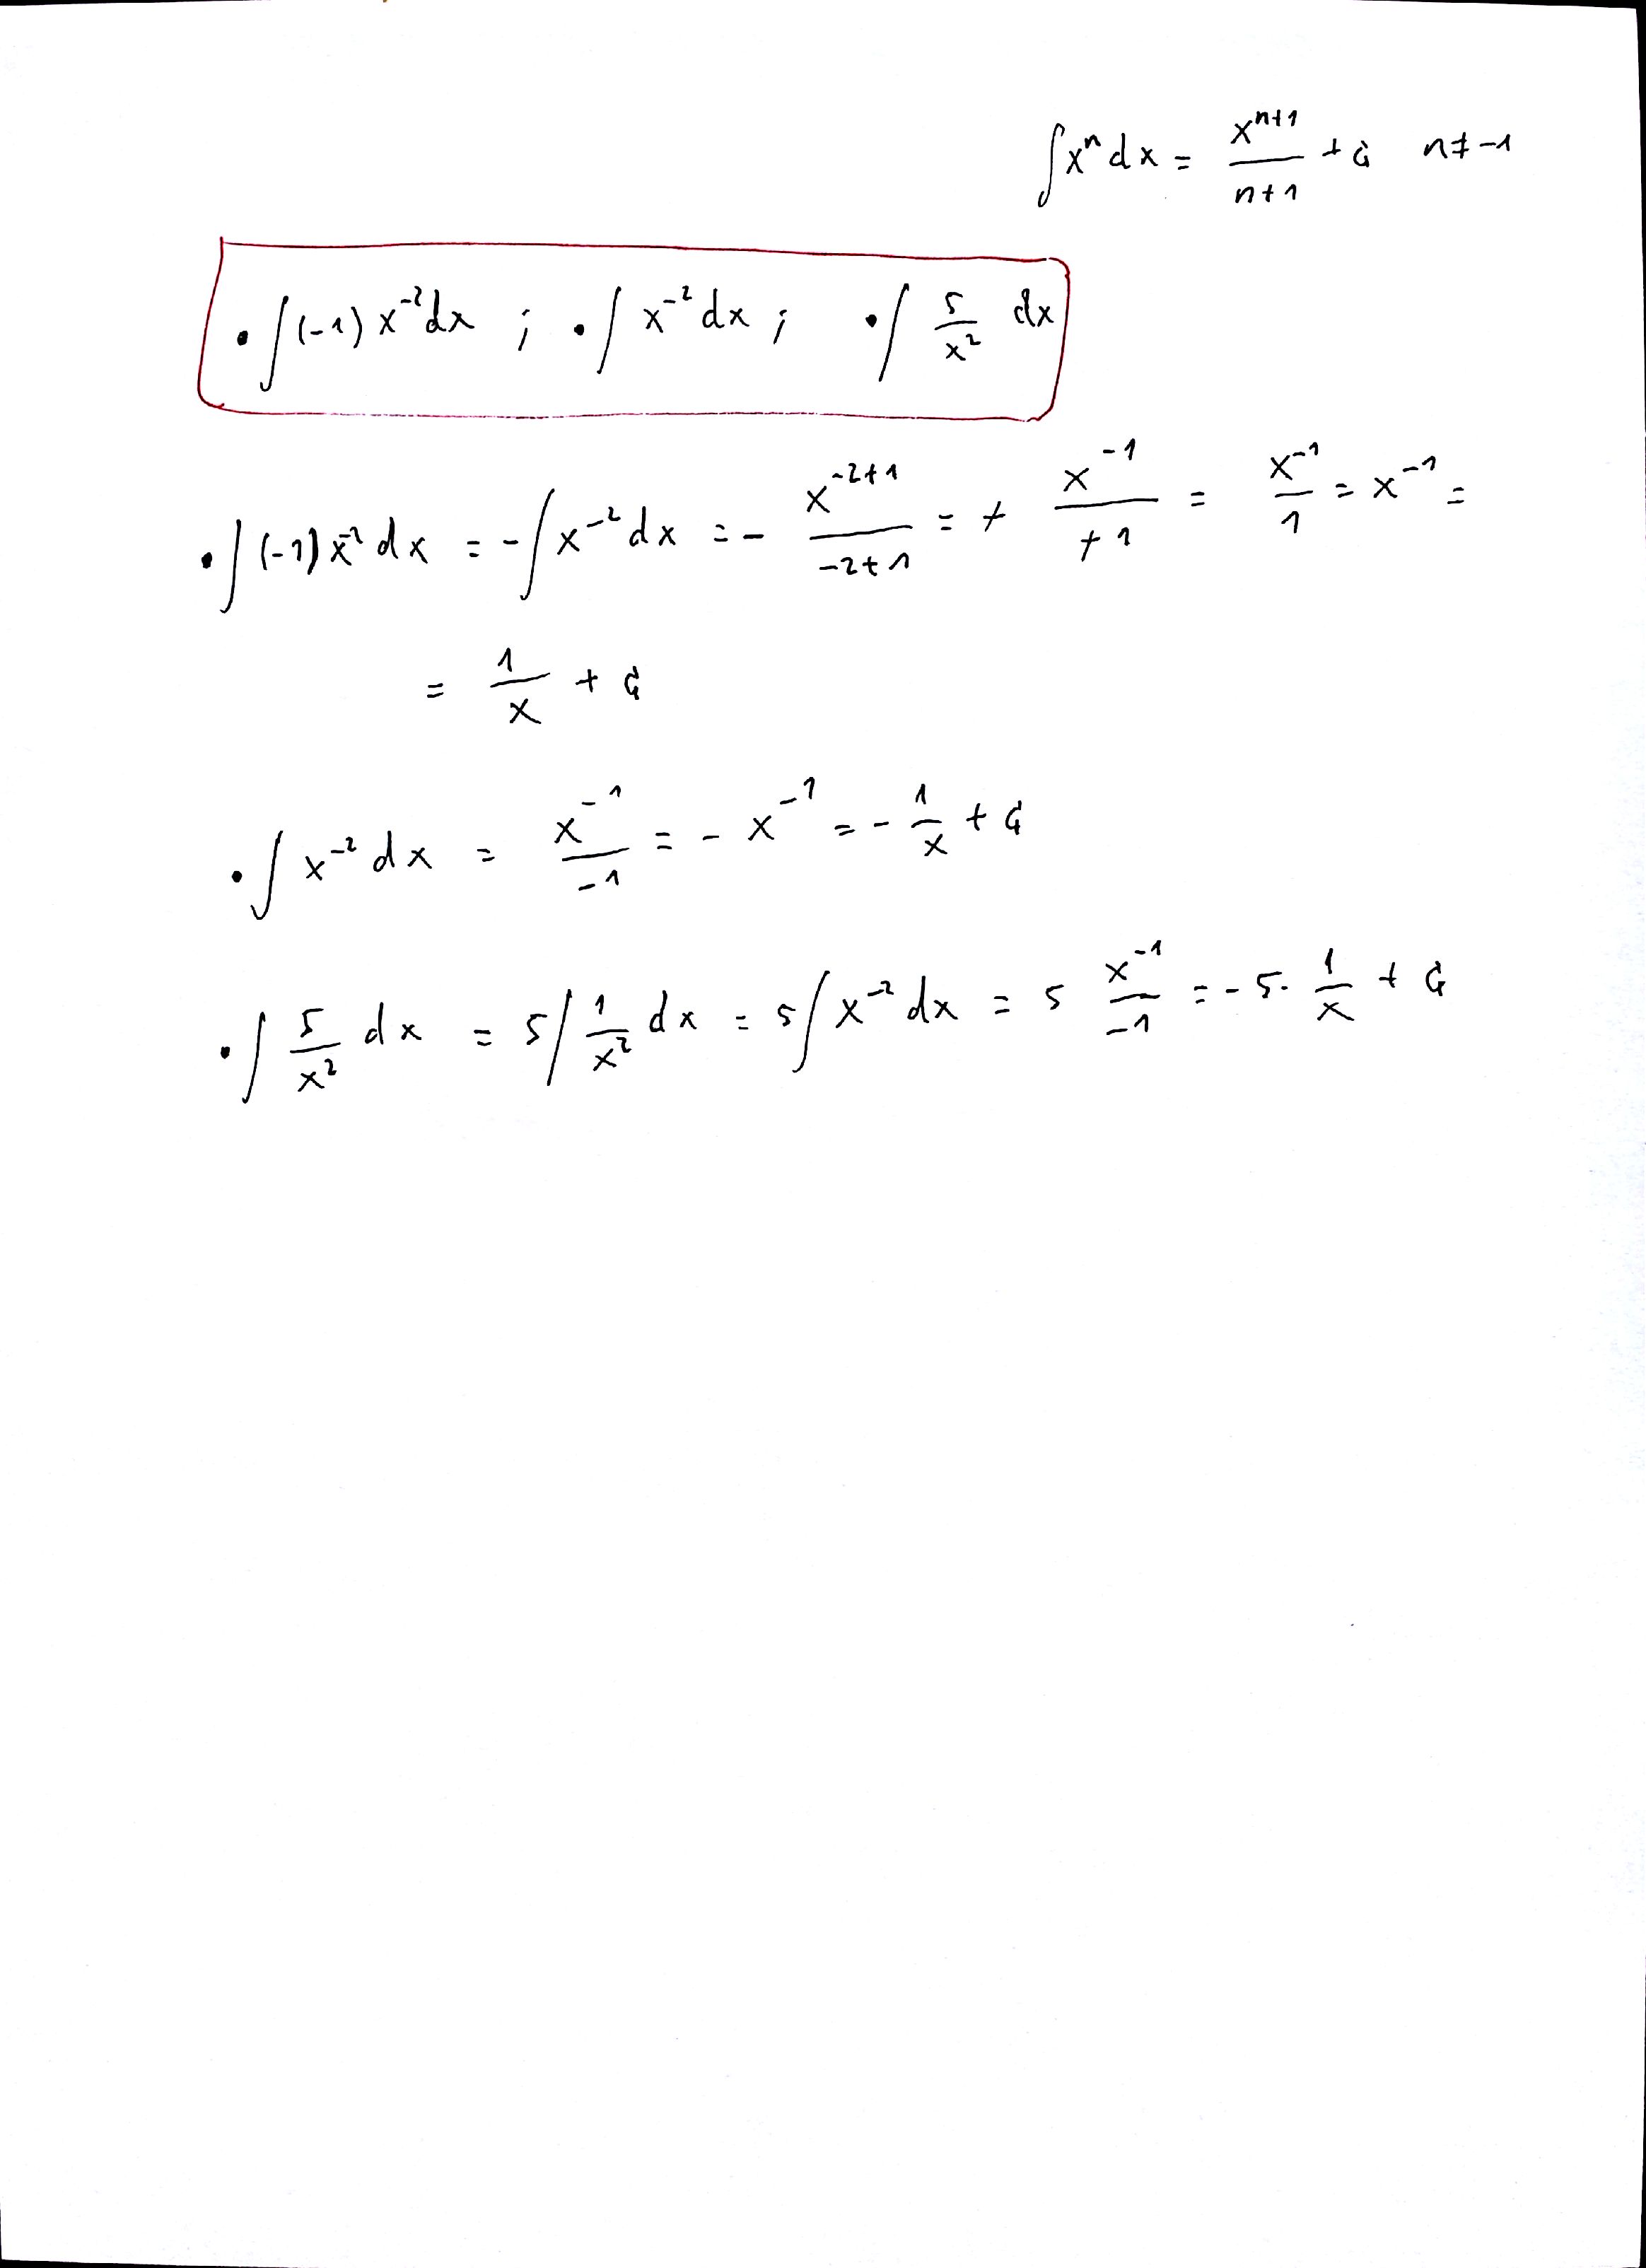 ∫xⁿdx = xⁿ⁺¹/(n+1) + C n≠-1
• ∫(-1)x⁻²dx ; • ∫x⁻²dx ; • ∫5/x² dx
• ∫(-1)x⁻²dx = -∫x⁻²dx = - x⁻²⁺¹/(-2+1) = + x⁻¹/(+1) = x⁻¹/1 = x⁻¹ =
= 1/x + C
• ∫x⁻²dx = x⁻¹/(-1) = - x⁻¹ = - 1/x + C
• ∫5/x² dx = 5∫1/x² dx = 5∫x⁻²dx = 5 x⁻¹/(-1) = -5 · 1/x + C